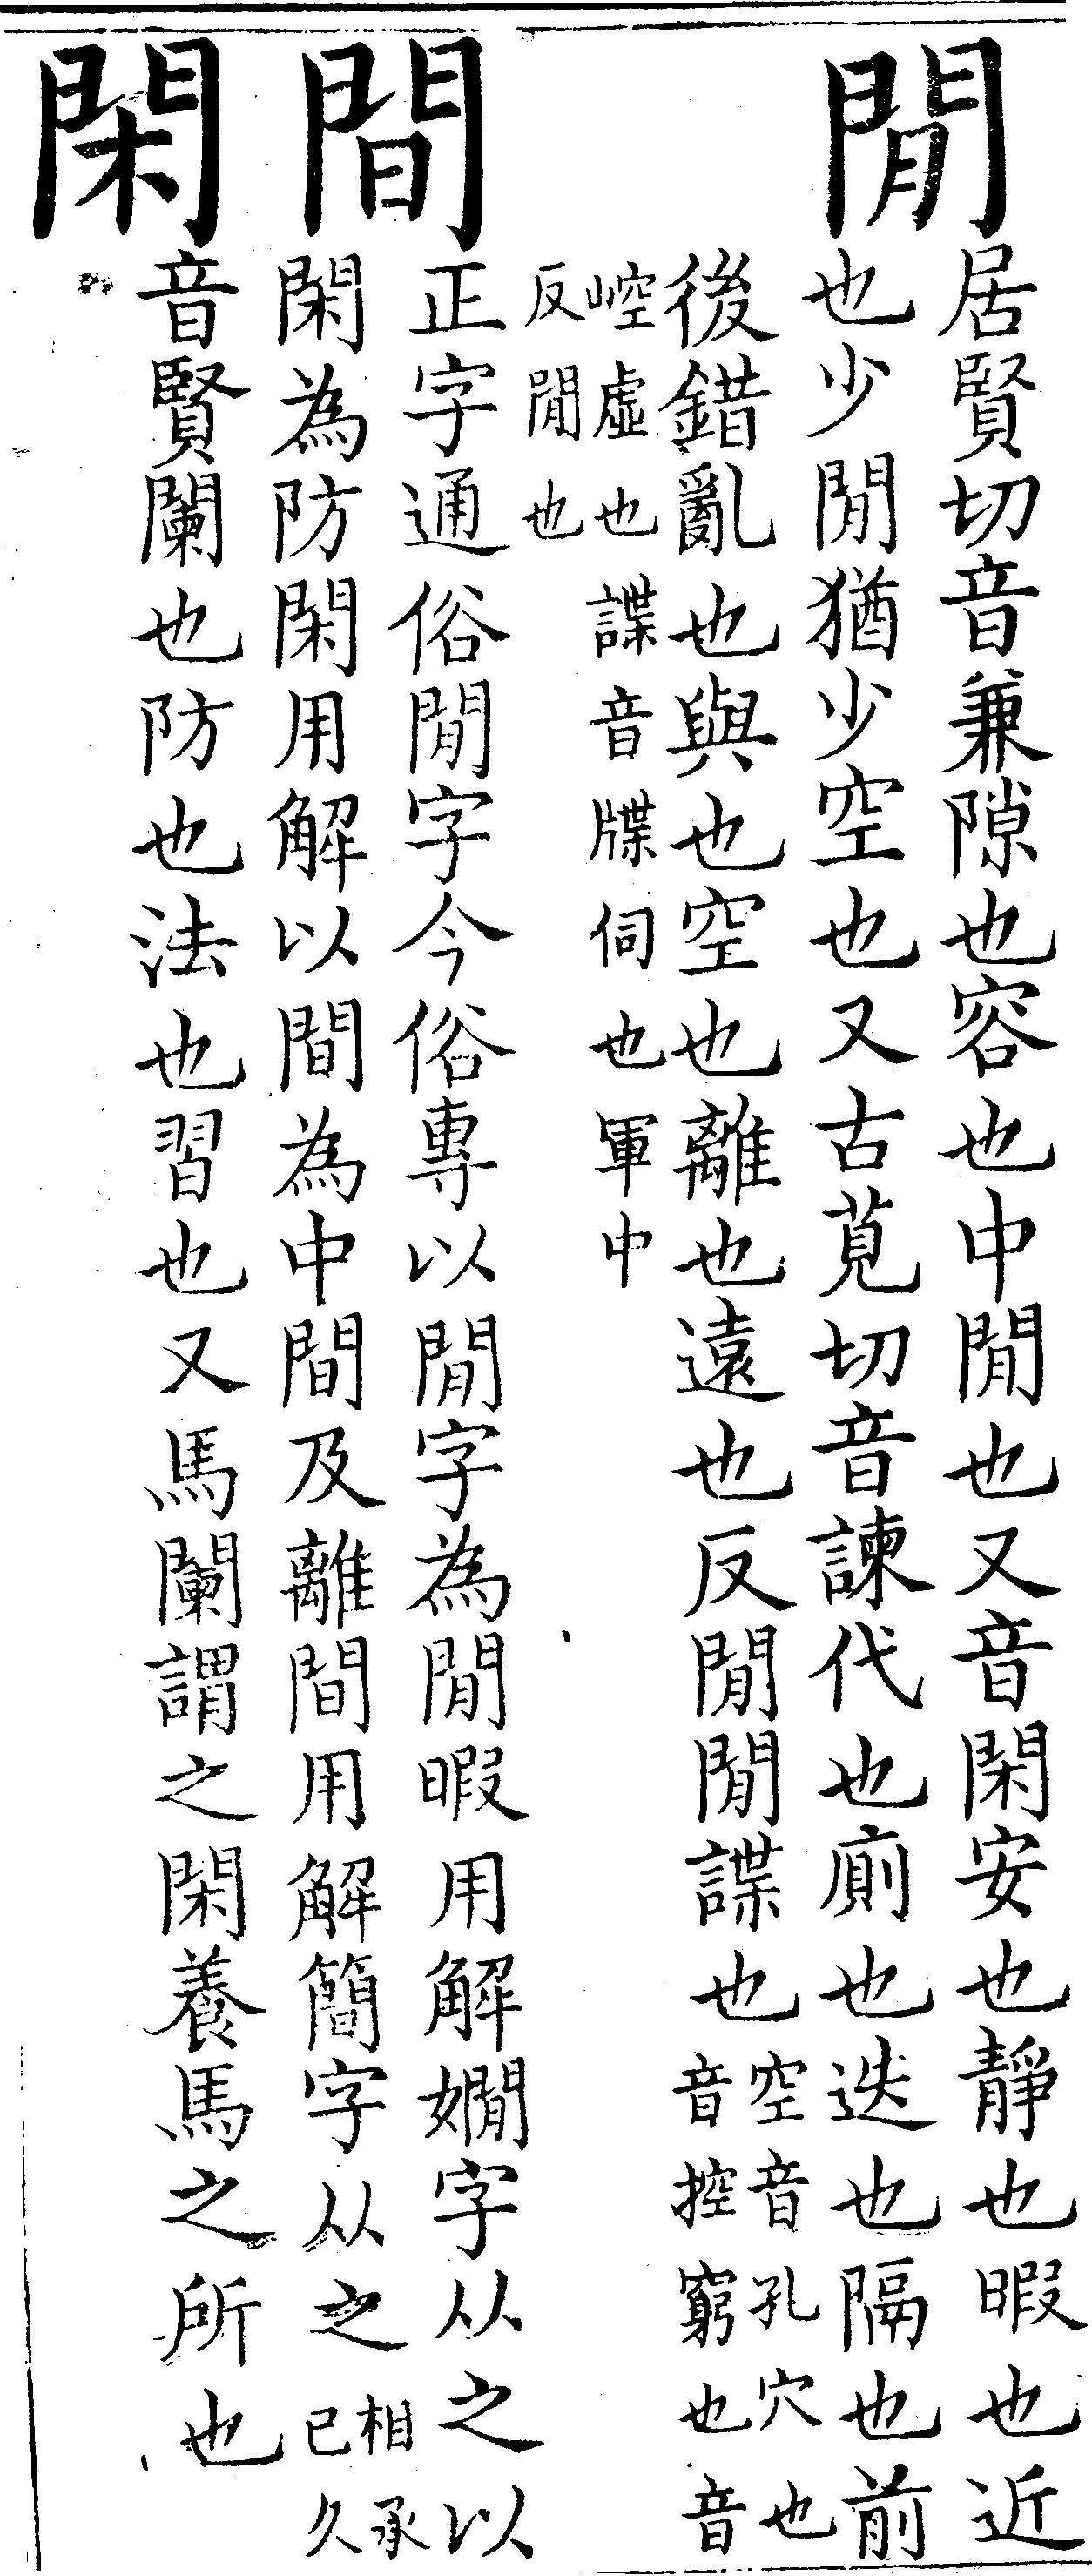 閒
居賢切音兼隙也容也中閒也又音閑安也靜也暇也近
也少閒猶少空也又古莧切音諫代也廁也迭也隔也前
後錯亂也與也空也離也遠也反閒閒諜也
空音孔穴也
音控窮也音
崆虛也諜音牒伺也軍中
反閒也
間
正字通俗閒字今俗專以閒字為閒暇用解嫺字从之以
閑為防閑用解以間為中間及離間用解簡字从之
相承
已久
閑
音賢闌也防也法也習也又馬闌謂之閑養馬之所也